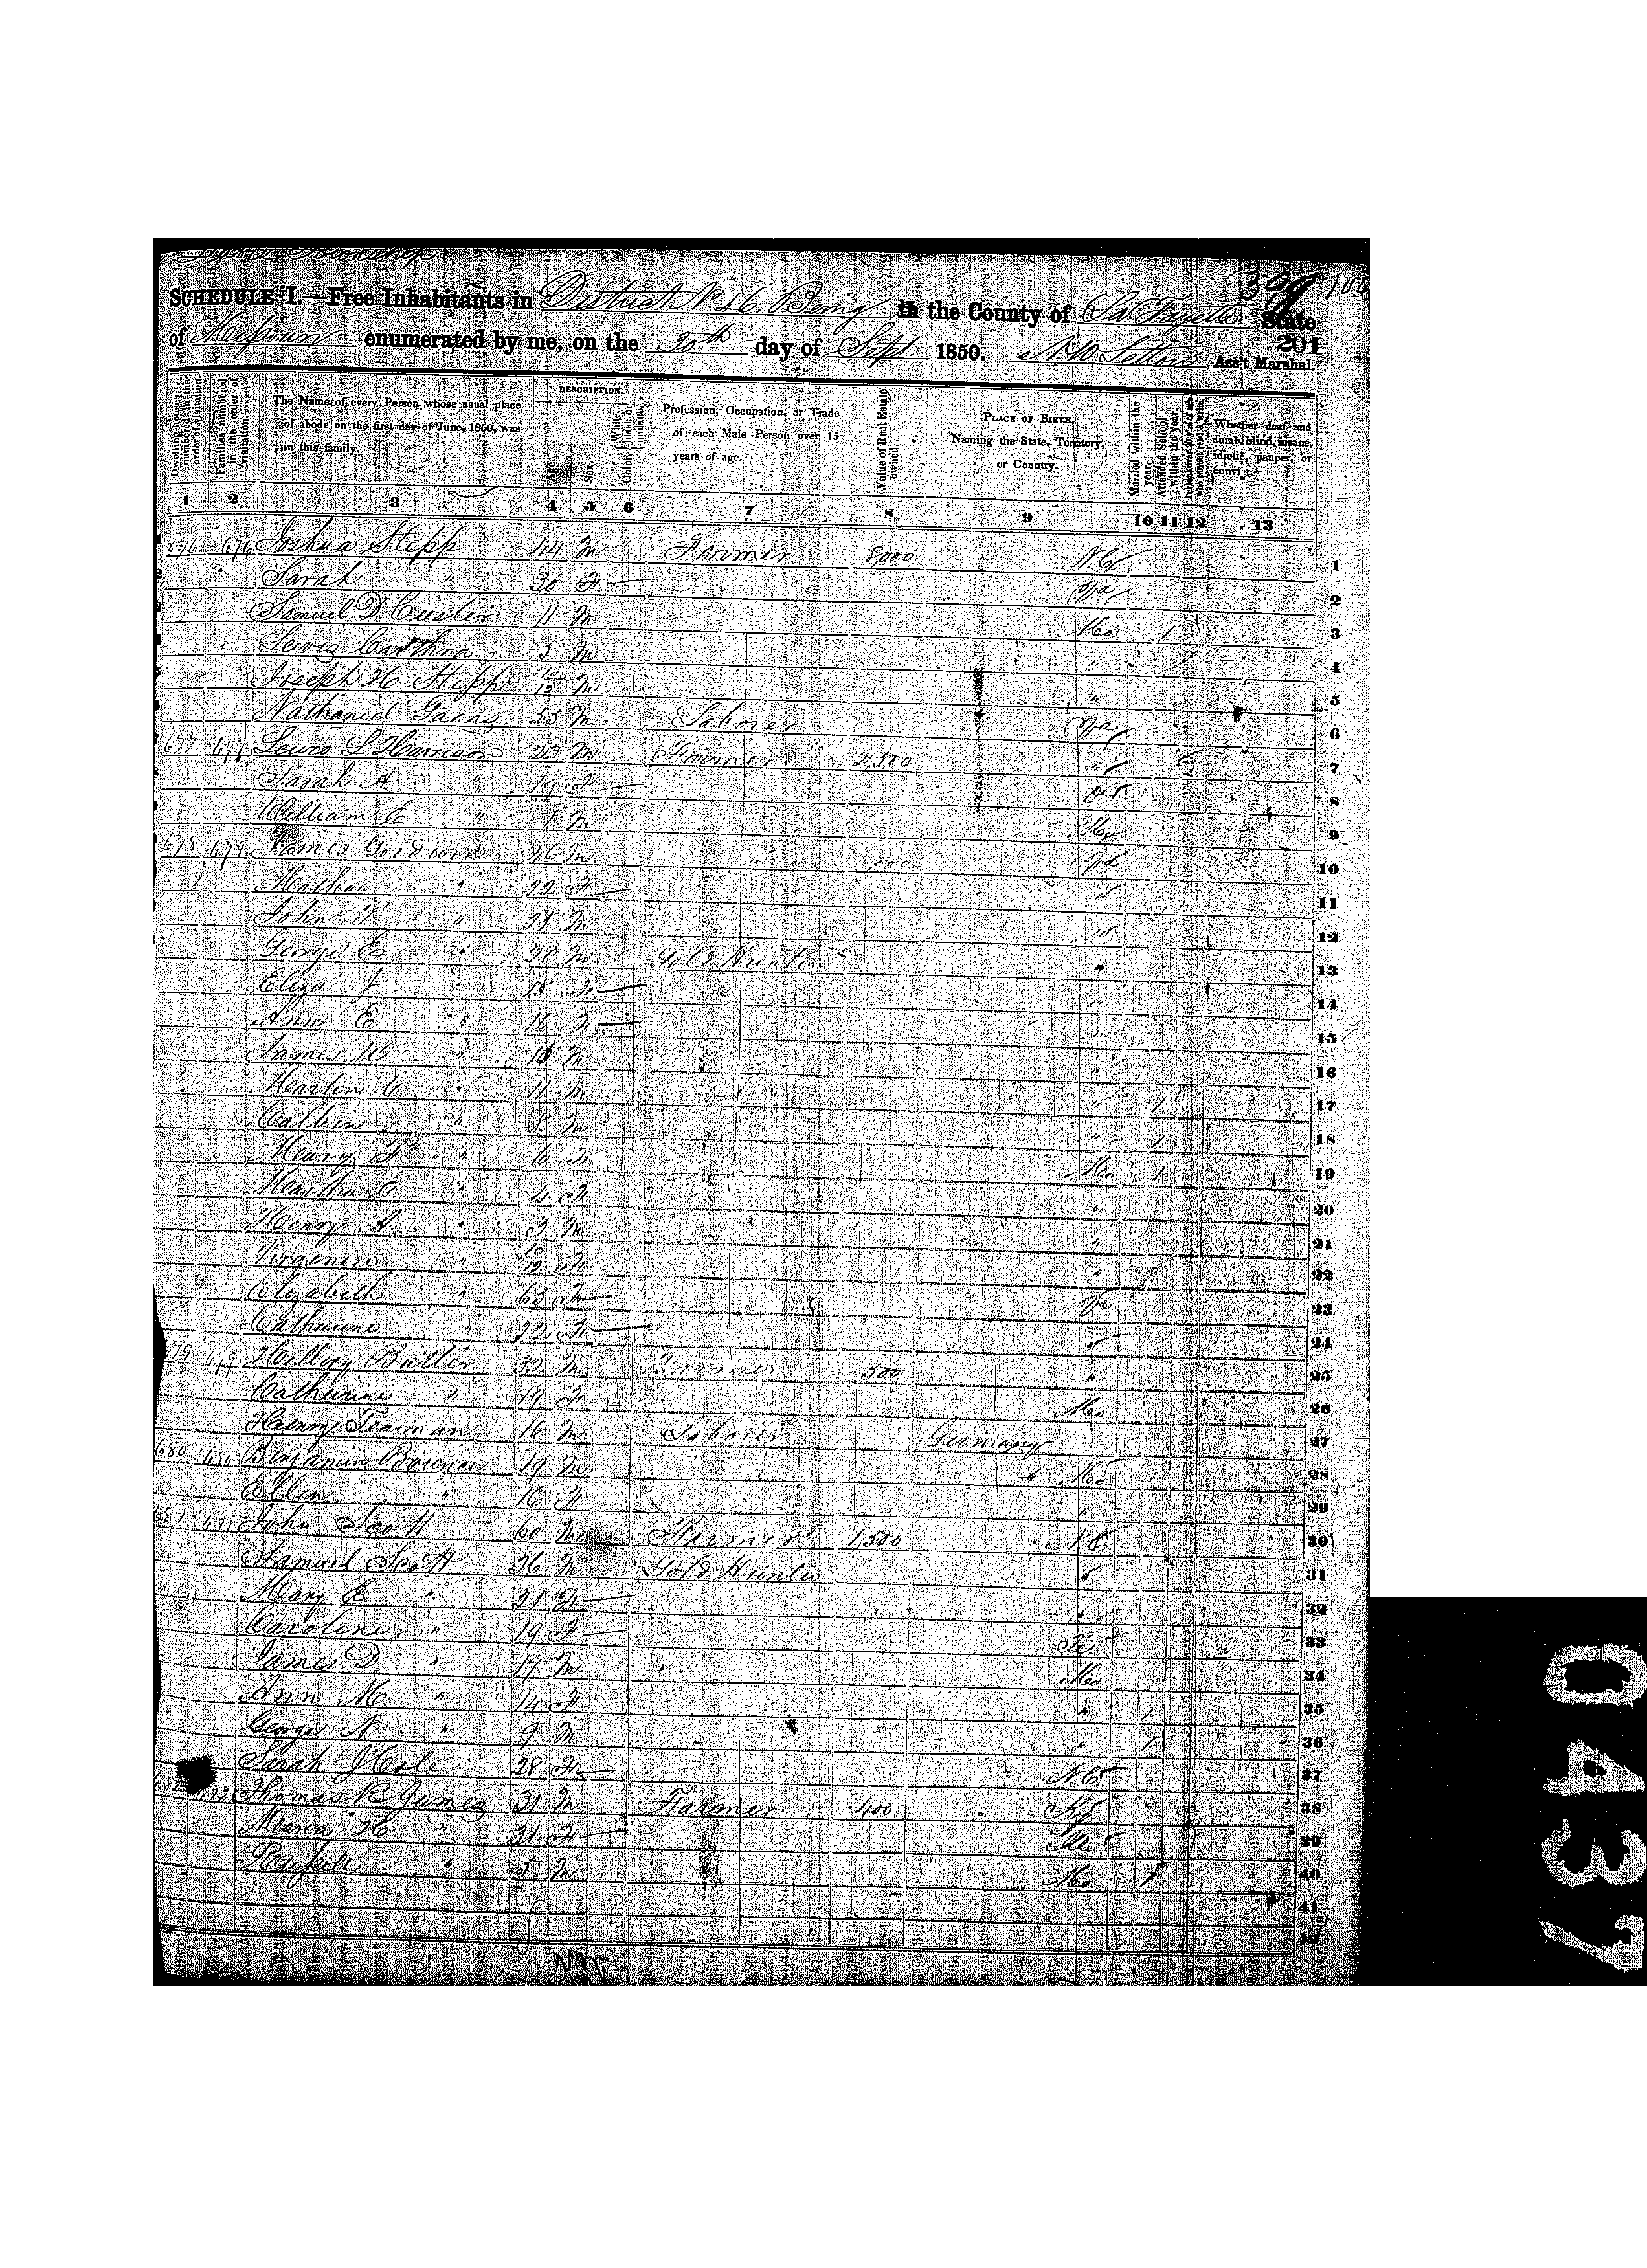 Township
399 100
SCHEDULE I.—Free Inhabitants in District No 46 Being in the County of La Fayette State
201
of Missouri enumerated by me, on the 30th day of Sept 1850. Ass't Marshal.
Dwelling-houses numbered in the order of visitation.
Families numbered in the order of visitation.
The Name of every Person whose usual place of abode on the first day of June, 1850, was in this family.
DESCRIPTION.
Age.
Sex.
Color, White, black, or mulatto.
Profession, Occupation, or Trade of each Male Person over 15 years of age.
Value of Real Estate owned.
PLACE OF BIRTH, Naming the State, Territory, or Country.
Married within the year.
Attended School within the year.
Persons over 20 y'rs of age who cannot read & write.
Whether deaf and dumb, blind, insane, idiotic, pauper, or convict.
1 2 3 4 5 6 7 8 9 10 11 12 13
676 676 Joshua Stepp 44 M Farmer 8,000 N.C. 1
Sarah " 30 F Va 2
Samuel D 11 M Mo 1 3
Lewis 5 M " 4
Joseph H Stipp 10/12 M " 5
Nathaniel Gains 25 M Laborer Va 6
677 677 Lewis S Harrison 23 M Farmer 2,500 " 7
Sarah A " 19 F 8
William E " 1 M Mo 9
678 678 James Goodwin 46 M " Va 10
" 22 F " 11
John F " 28 M " 12
George E " 20 M Gold Hunter " 13
Eliza J " 18 F " 14
Ann E " 16 F " 15
James W " 15 M " 16
Martin C " 11 M " 1 17
Calvin " 8 M " 1 18
Meary F " 6 F Mo 1 19
Martha C " 4 F " 20
Henry A " 3 M " 21
Virginia " 10/12 F " 22
Elizabeth " 63 F Va 23
Catharine " 22 F " 24
679 679 Hillory Butler 32 M Farmer 500 " 25
Catharine " 19 F Mo 26
Henry Teaman 16 M Laborer Germany 27
680 680 Benjamin 19 M Mo 28
Ellen " 16 F " 29
681 681 John Scott 60 M Farmer 1,500 N.C. 30
Samuel Scott 26 M Gold Hunter " 31
Mary E " 21 F " 32
Caroline " 19 F Te 33
James D " 17 M Mo 34
Ann M " 14 F " 1 35
George N " 9 M " 1 36
Sarah J Cole 28 F N.C. 37
682 682 Thomas R James 31 M Farmer 400 Ky 38
Maria H " 31 F Ill 39
Russell " 5 M Mo 1 40
41
42
0437